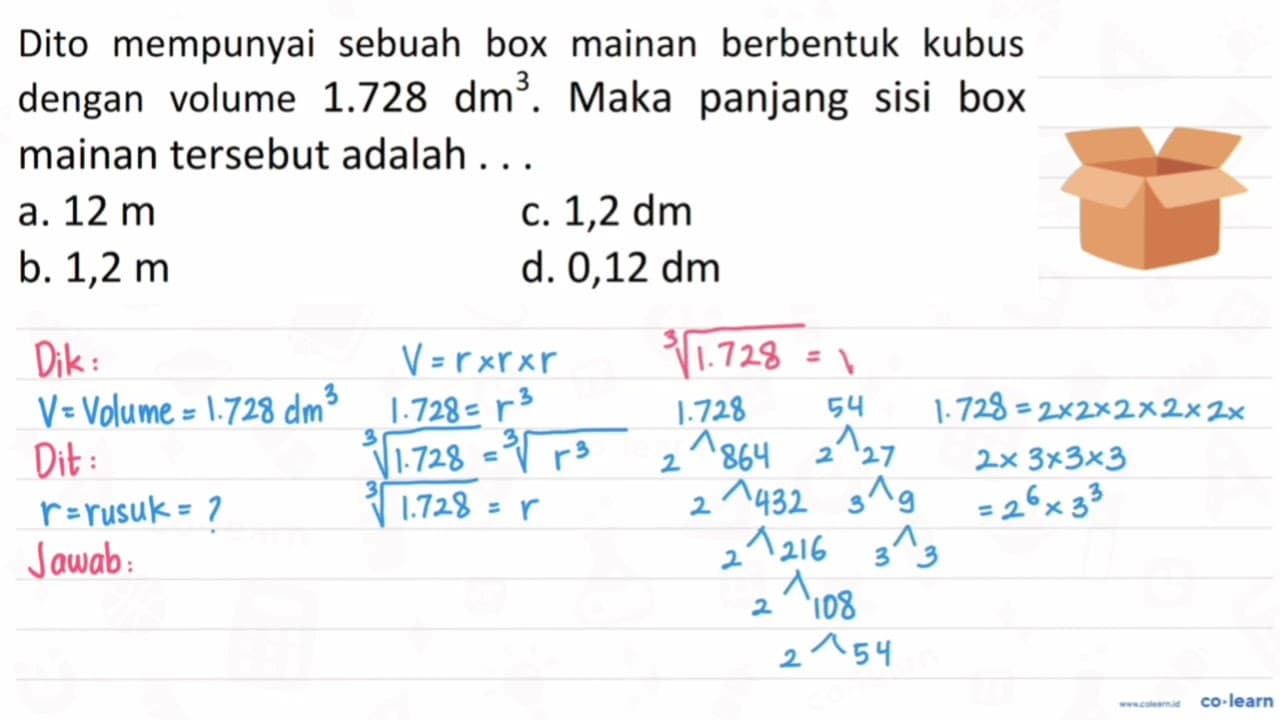 Dito mempunyai sebuah box mainan berbentuk kubus
dengan volume 1.728 dm³. Maka panjang sisi box
mainan tersebut adalah . . .
a. 12 m
c. 1,2 dm
b. 1,2 m
d. 0,12 dm
Dik:
V = Volume = 1.728 dm³
Dit:
r = rusuk = ?
Jawab:
V = r x r x r
1.728 = r³
³√1.728 = ³√r³
³√1.728 = r
³√1.728 =
1.728
2 864
2 432
2 216
2 108
2 54
54
2 27
3 9
3 3
1.728 = 2x2x2x2x2x
2x 3x3x3
= 2⁶ x 3³
www.colearn.id co·learn